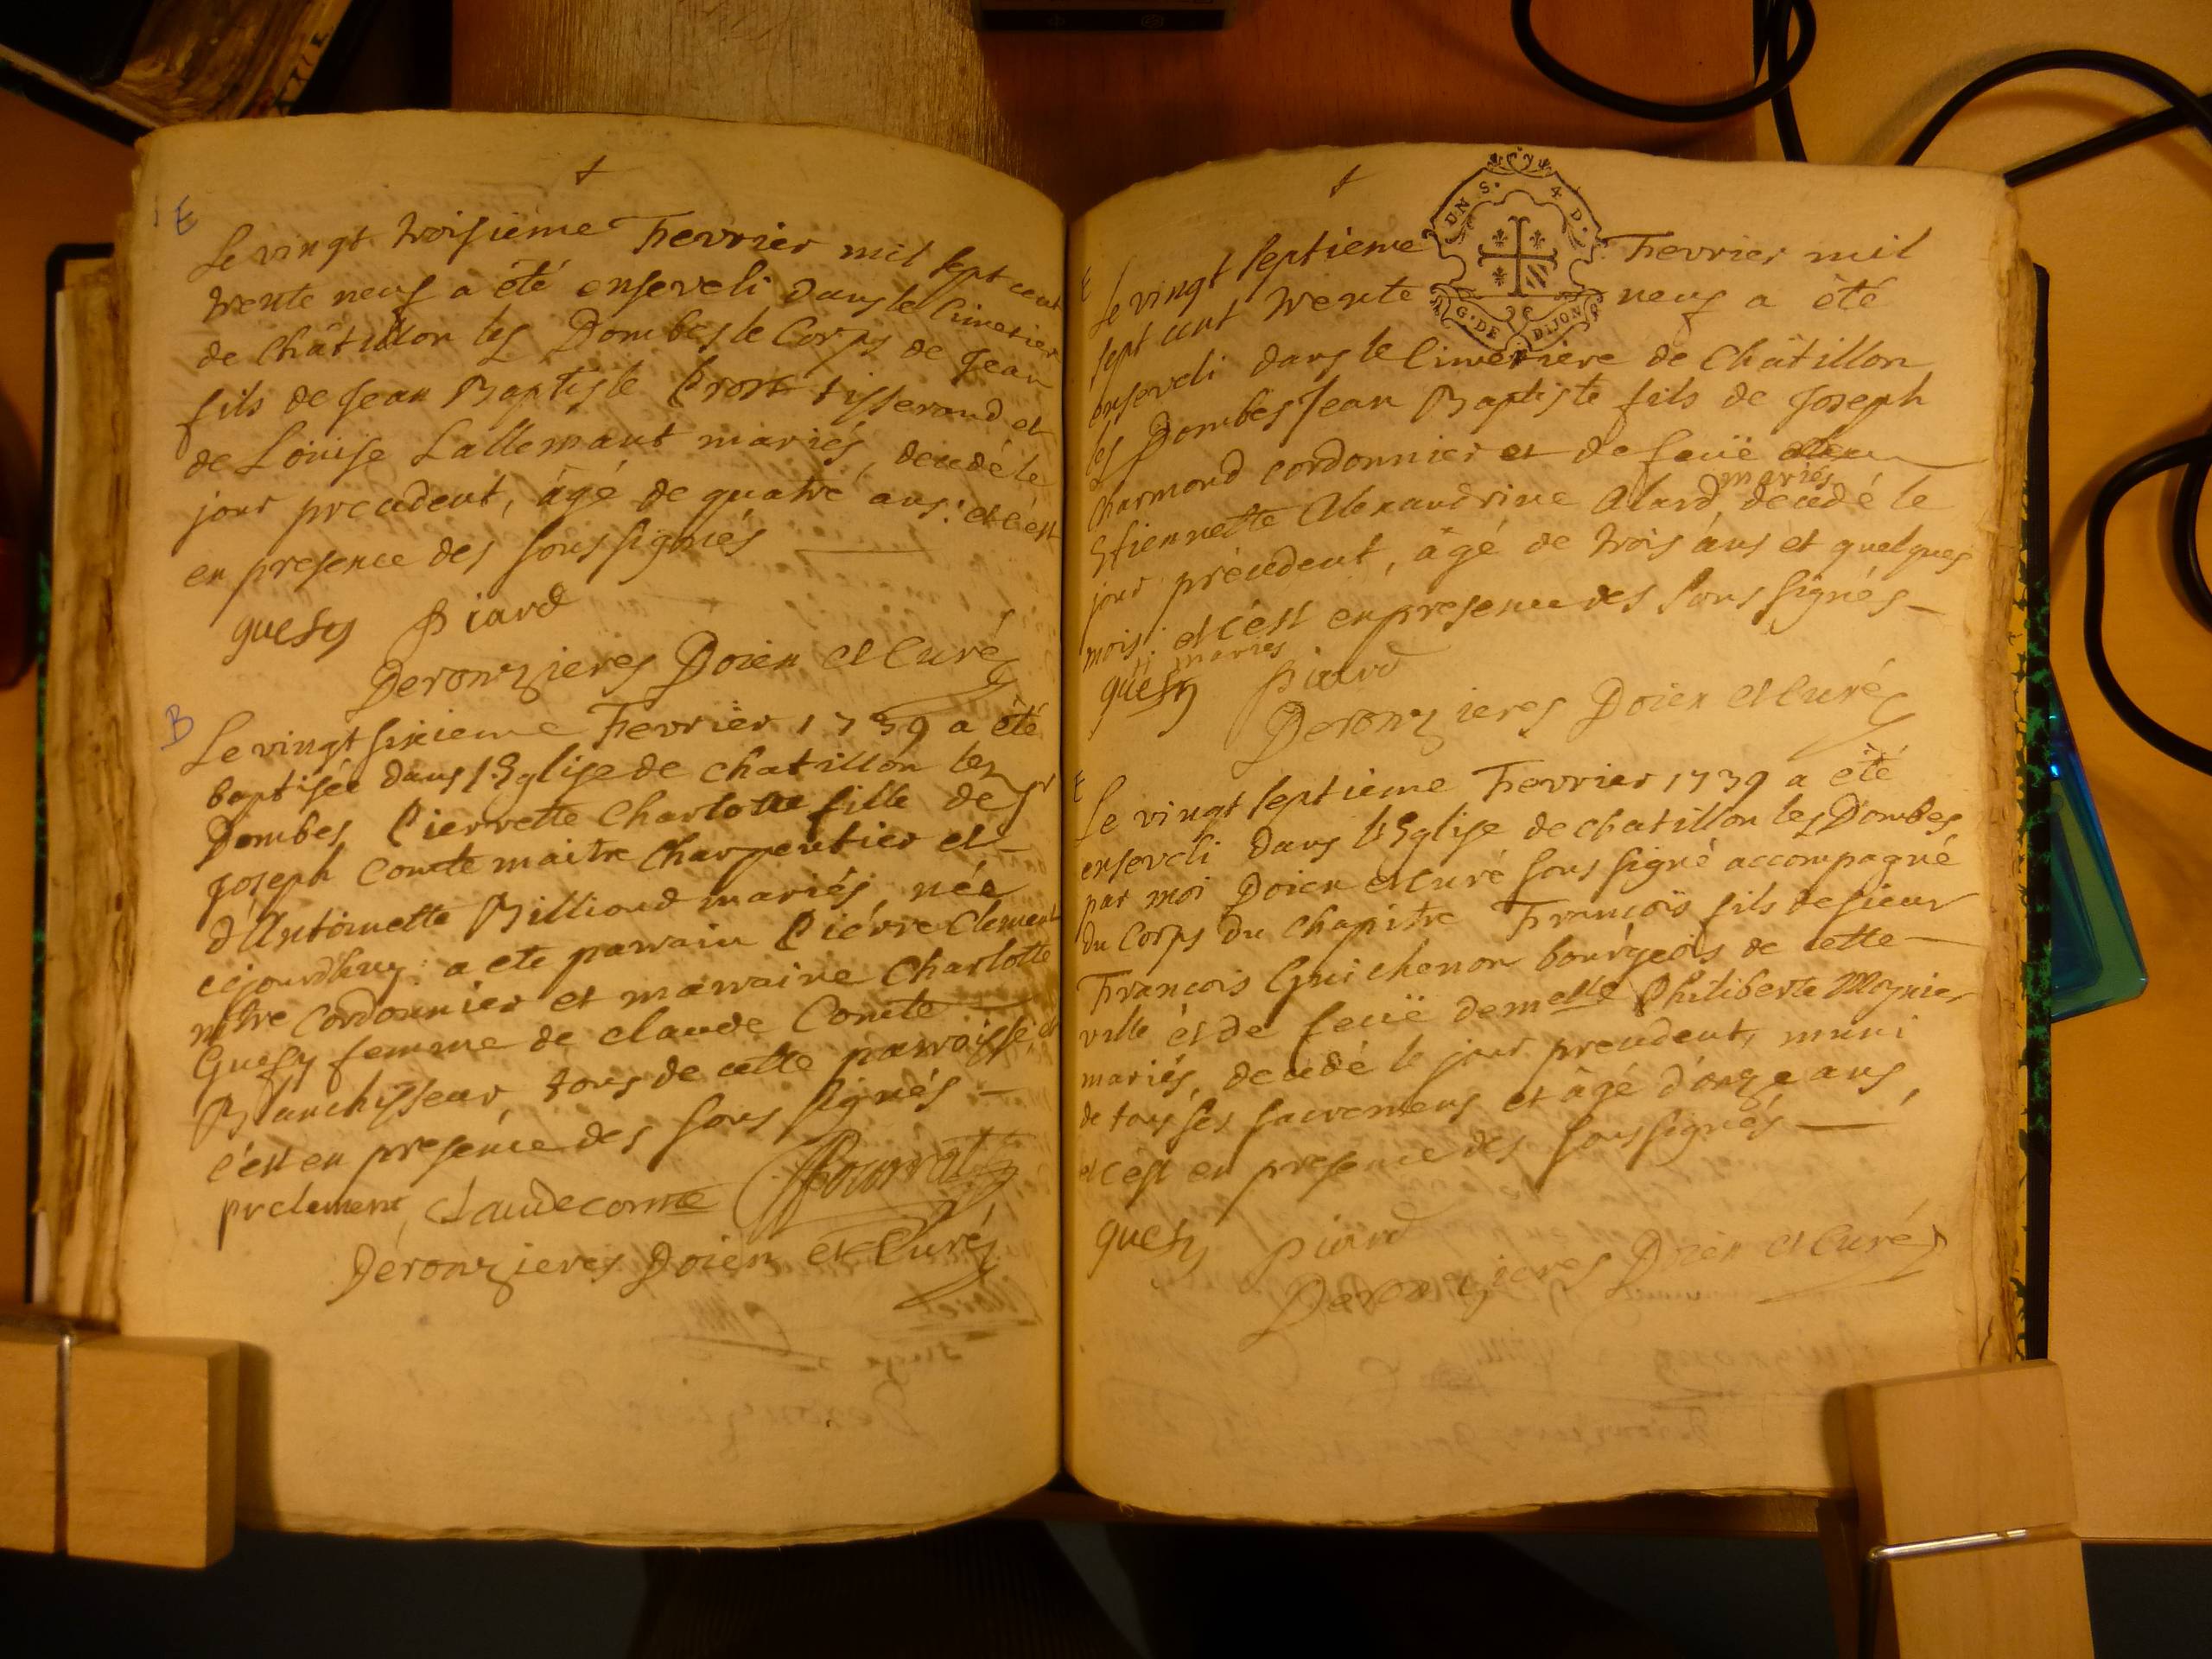 E
Le vingt troisieme Fevrier mil sept cent
trente neuf a été enseveli dans le Cimetier
de Châtillon les Dombes le Corps de Jean
fils de Jean Baptiste Prost tisserand et
de Louise Lallemant mariés, decedé le
jour precedent, âgé de quatre ans: et c'est
en presence des soussignés
guesy piard
Deronzieres Doien et Curé
B
Le vingt sixieme Fevrier 1739 a été
baptisée dans l'Eglise de chatillon les
Dombes Pierrette Charlotte fille de Sr
Joseph Comte maitre Charpentier et
d'Antoinette Billioud mariés, née
cejourdhuy: a ete parrain Pierre Clement
mtre Cordonnier et marraine Charlotte
Guesy femme de claude Comte
Blanchisseur, tous de cette parroisse, et
c'est en presence des sous signés
pr clement Claude comte
Deronzieres Doien et Curé
UN S. 4 D.
G. DE DIJON
E
Le vingt septieme Fevrier mil
sept cent trente neuf a été
enseveli dans le Cimetiere de Châtillon
les Dombes Jean Baptiste fils de Joseph
Charmond cordonnier et de feuë
Etiennette Alexandrine Alard mariés, decedé le
jour précedent, âgé de trois ans et quelques
mois: et c'est en presence des sous signés
mariés
guesy piard
Deronzieres Doien et Curé
E
Le vingt septieme Fevrier 1739 a été
enseveli dans l'Eglise de chatillon les Dombes
par moi Doien et Curé sous signé accompagné
du Corps du Chapitre François fils de sieur
François Guichenon bourgeois de cette
ville et de feuë demelle Philiberte Mognier
mariés, decedé le jour precedent, muni
de tous ses sacremens et âgé d'onze ans,
et c'est en presence des sous signés
guesy piard
Deronzieres Doien et Curé